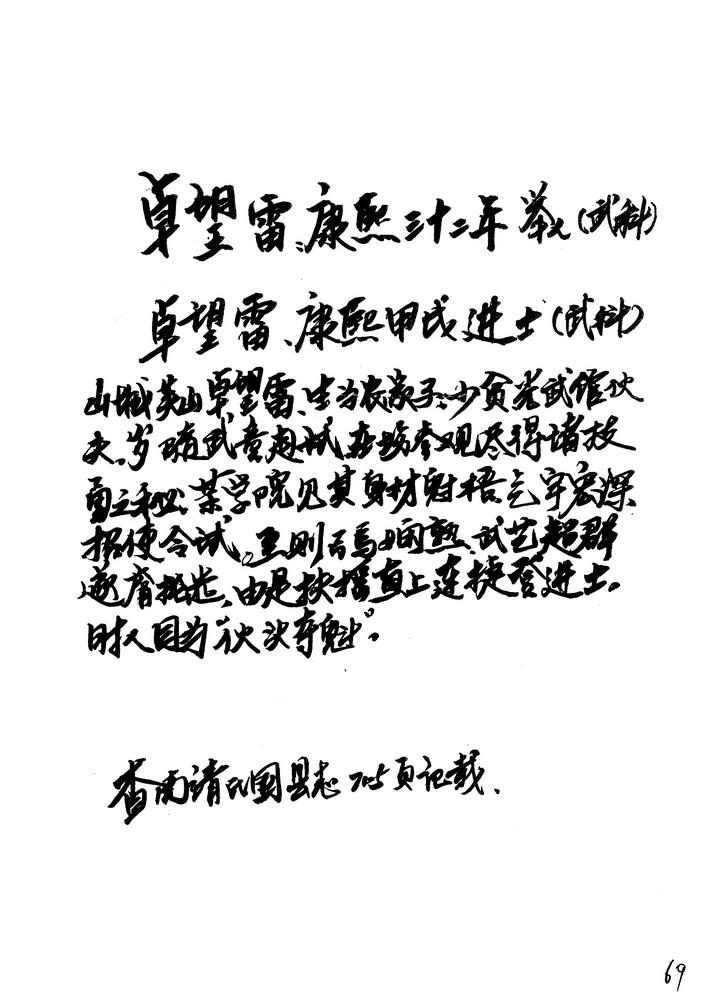 卓望雷、康熙三十二年举人(武科)
卓望雷、康熙甲戌进士(武科)
山城英山卓望雷、生当农家子、少贫为武馆伙
夫。岁随武童赴试、在场参观尽得诸技
勇之秘、某学院见其身材魁梧、气宇宏深
招使合试。至则弓马娴熟、武艺超群
逐有批出、由是扶摇直上连捷登进士。
时人目为“伙头夺魁”。
查南靖民国县志705页记载、
69